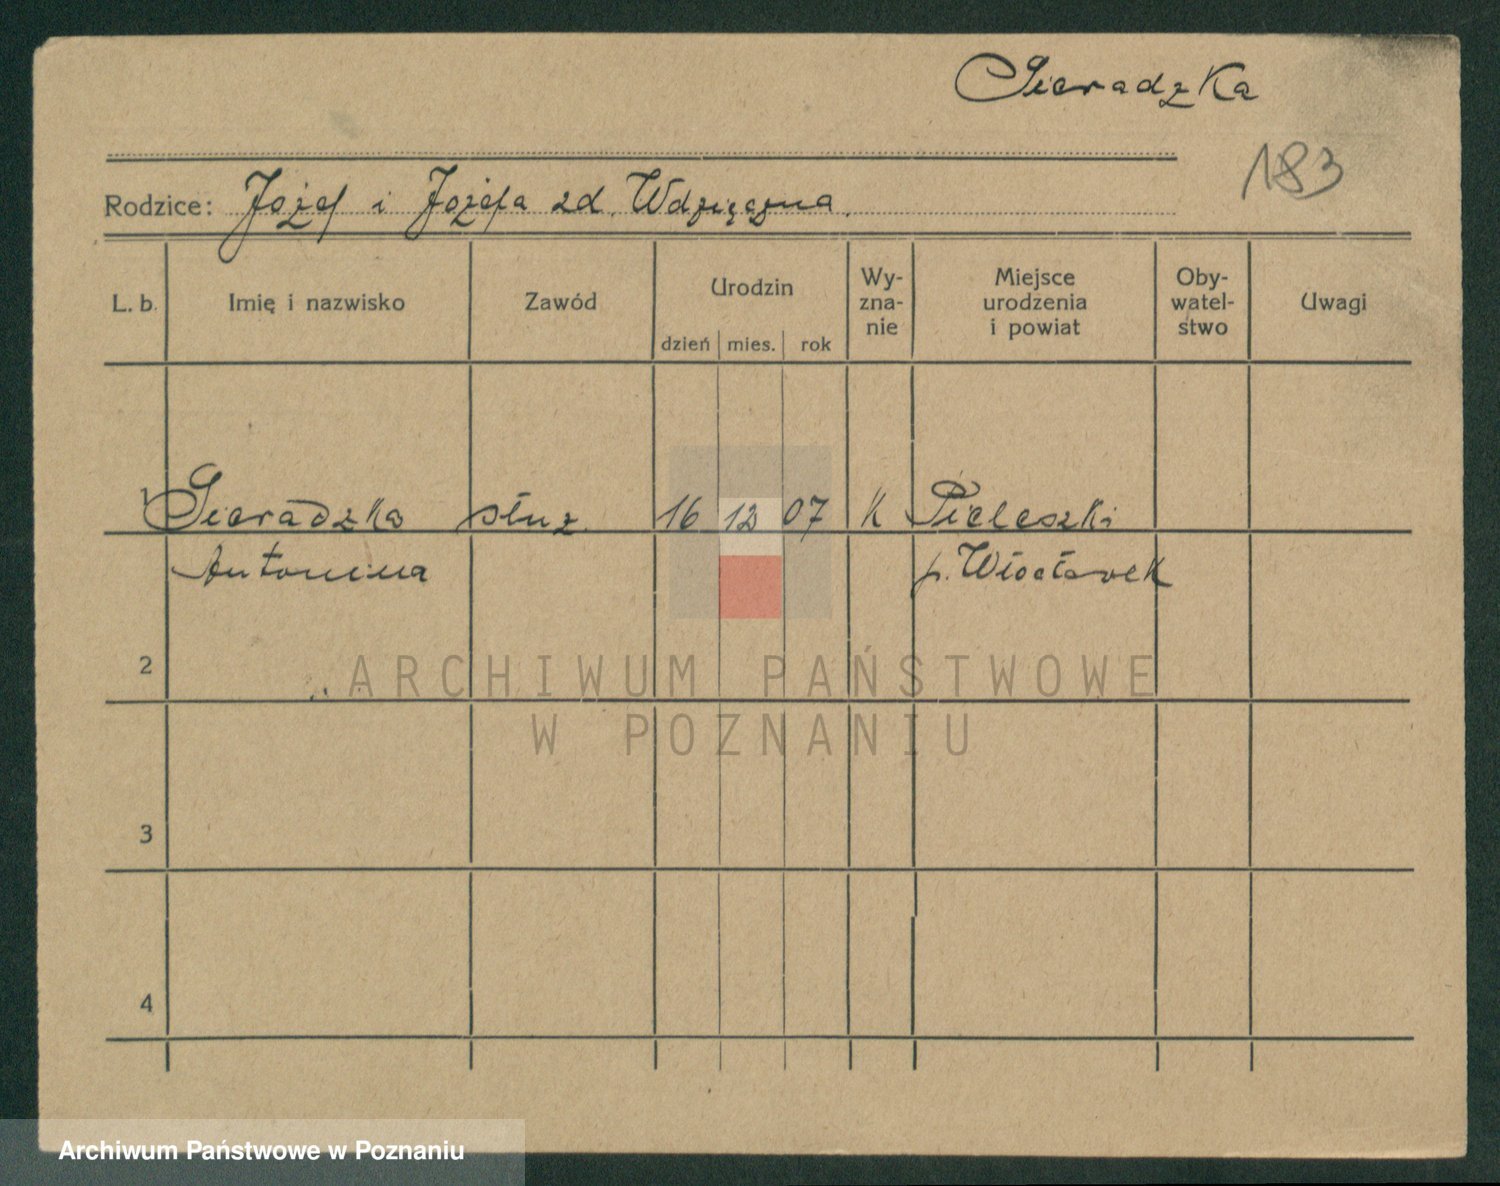 Sieradzka
183
Rodzice: Józef i Józefa zd. Wdzięczna.
L. b. Imię i nazwisko Zawód Urodzin dzień mies. rok Wy-zna-nie Miejsce urodzenia i powiat Oby-watel-stwo Uwagi
1 Sieradzka służ. 16 12 07 K Pieleszki
Antonina p. Włocławek
2
ARCHIWUM PAŃSTWOWE
W POZNANIU
3
4
Archiwum Państwowe w Poznaniu